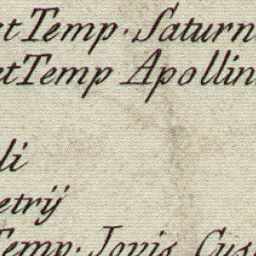 et Temp. Saturn
et Temp Apollin
li
etrij
Temp. Jovis Cus